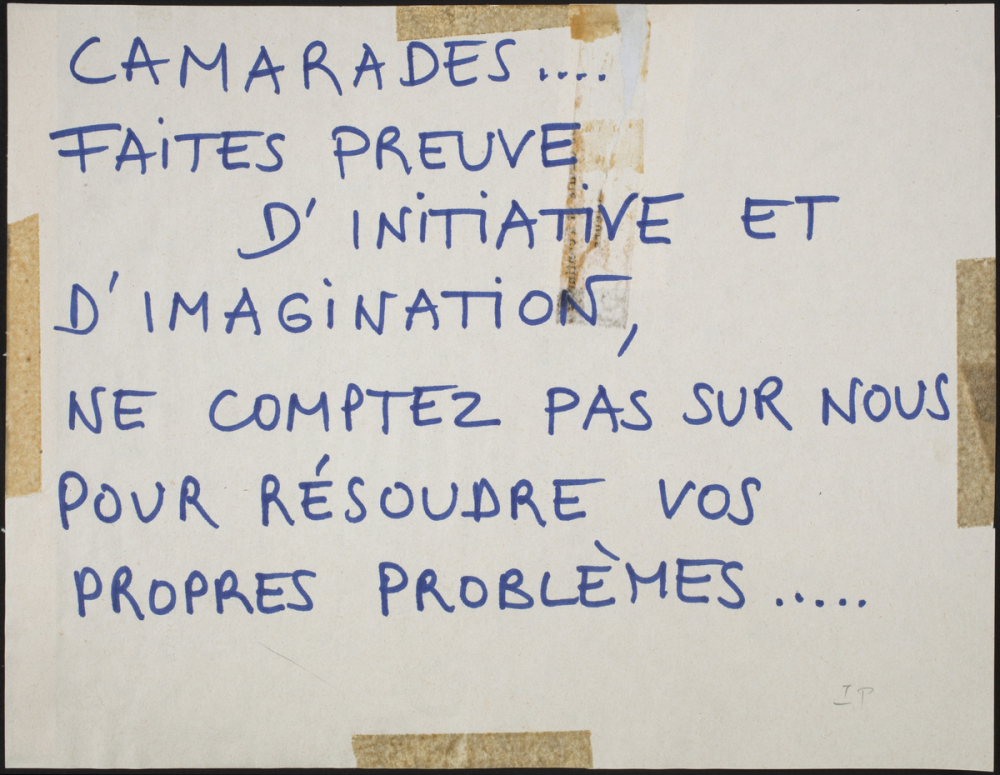 CAMARADES....
FAITES PREUVE
D'INITIATIVE ET
D'IMAGINATION,
NE COMPTEZ PAS SUR NOUS
POUR RÉSOUDRE VOS
PROPRES PROBLÈMES.....
IP